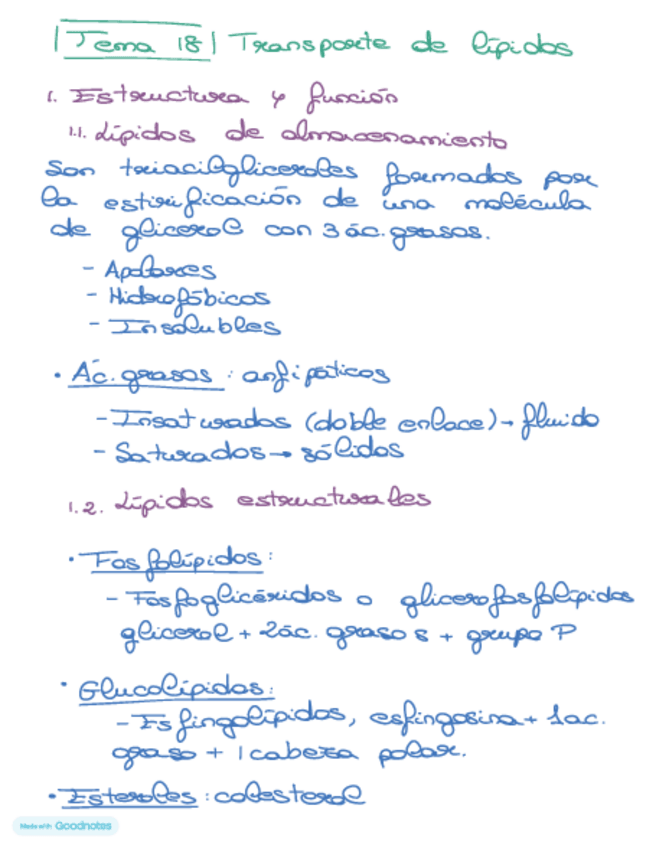 Tema 18 Transporte de lípidos
1. Estructura y función
1.1. Lípidos de almacenamiento
Son triacilgliceroles formados por
la estirificación de una molécula
de glicerol con 3 ác. grasos.
- Apolares
- Hidrofóbicos
- Insolubles
• Ác. grasos : anfipáticos
- Insaturados (doble enlace) → fluido
- Saturados → sólidos
1.2. Lípidos estructurales
• Fosfolípidos:
- Fosfoglicéridos o glicerofosfolípidos
glicerol + 2ác. grasos + grupo P
• Glucolípidos:
- Esfingolípidos, esfingosina + 1ac.
graso + 1 cabeza polar.
• Esteroles : colesterol
Made with Goodnotes